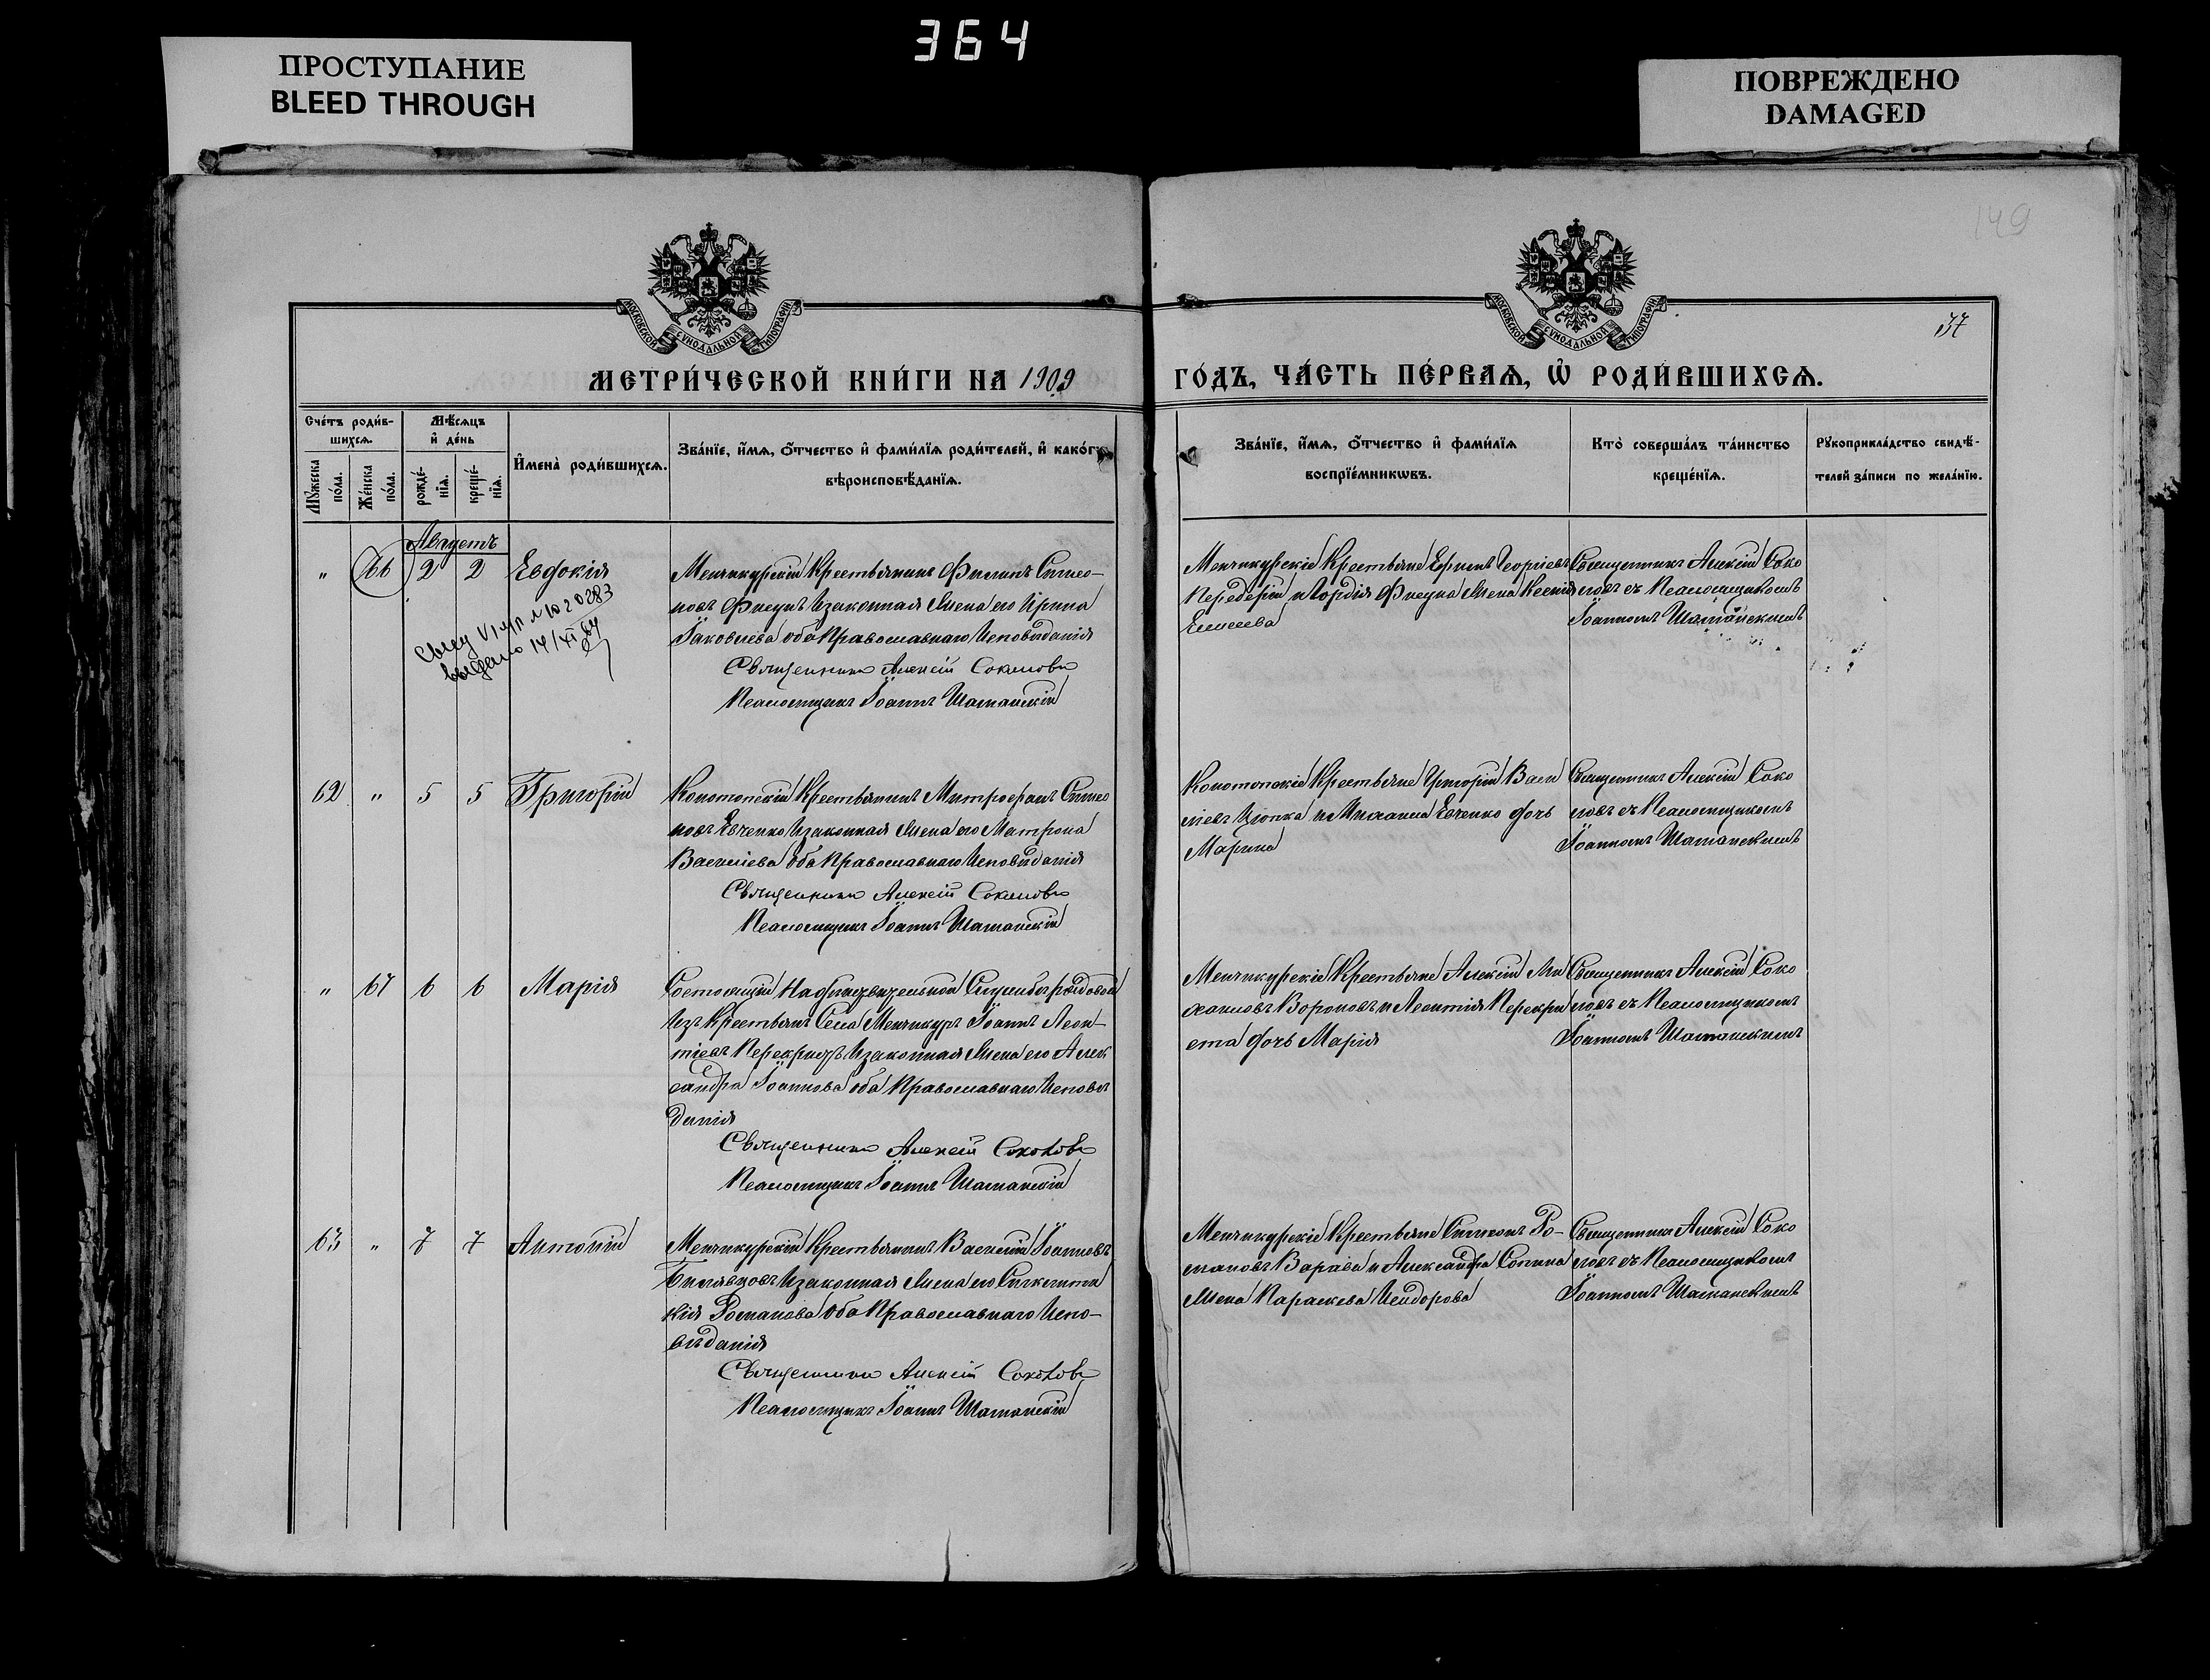 364
ПРОСТУПАНИЕ
BLEED THROUGH
ПОВРЕЖДЕНО
DAMAGED
149
МОСКОВСКОЙ СУНОДАЛЬНОЙ ТИПОГРАФІИ
МОСКОВСКОЙ СУНОДАЛЬНОЙ ТИПОГРАФІИ
37
МЕТРИ́ЧЕСКОЙ КНИ́ГИ НА 1909
ГО́ДЪ, ЧА́СТЬ ПЕ́РВАѦ, Ѡ҆ РОДИ́ВШИХСѦ.
Сче́тъ роди́в-
шихсѧ.
Мѣ́сѧцъ
и҆ де́нь
Мꙋ́жеска
по́ла.
Же́нска
по́ла.
рожде́-
нїѧ.
креще́-
нїѧ.
И҆мена̀ роди́вшихсѧ.
Зва́нїе, и҆́мѧ, ѻ҆́тчество и҆ фами́лїѧ роди́телей, и҆ како́гѡ
вѣроисповѣ́данїѧ.
Зва́нїе, и҆́мѧ, ѻ҆́тчество и҆ фами́лїѧ
воспрїе́мникѡвъ.
Кто̀ соверша́лъ та́инство
креще́нїѧ.
Рꙋкоприкла́дство свидѣ́-
телей за́писи по жела́нїю.
Августъ
" 66 2 2 Евдокія
Менчикурскій Крестьянинъ Филипъ Симео-
новъ Фисунъ Изаконная Жена его Ирина
Іаковлева оба Православнаго Исповѣданія
Священникъ Алексій Соколовъ
Псаломщикъ Іоаннъ Шатанскій
выдано 14/XI 64
Менчикурскіе Крестьяне Ефимъ Георгіевъ
Передерій и Гордія Фисуна Жена Ксенія
Елисеева
Священникъ Алексій Соко
ловъ съ Псаломщикомъ
Іоанномъ Шатанскимъ
62 " 5 5 Григорій
Конотопскій Крестьянинъ Митрофанъ Симео
новъ Евченко Изаконная Жена его Матрона
Васильева оба Православнаго Исповѣданія
Священникъ Алексій Соколовъ
Псаломщикъ Іоаннъ Шатанскій
Конотопскіе Крестьяне Григорій Васи
ліевъ Цюпка и Михаила Евченко дочь
Марина
Священникъ Алексій Соко
ловъ съ Псаломщикомъ
Іоанномъ Шатанскимъ
" 67 6 6 Марія
Состоящій На Службѣ рядовой
Изъ Крестьянъ Села Менчикуръ Іоаннъ Леон-
тіевъ Перекрестъ Изаконная Жена его Алек
сандра Іоаннова оба Православнаго Исповѣ
данія
Священникъ Алексій Соколовъ
Псаломщикъ Іоаннъ Шатанскій
Менчикурскіе Крестьяне Алексій Ми
хаиловъ Вороновъ и Леонтія Перекри
ста дочь Марія
Священникъ Алексій Соко
ловъ съ Псаломщикомъ
Іоанномъ Шатанскимъ
63 " 7 7 Антоній
Менчикурскій Крестьянинъ Василій Іоанновъ
Изаконная Жена его Сигклити
кія Романова оба Православнаго Испо-
вѣданія
Священникъ Алексій Соколовъ
Псаломщикъ Іоаннъ Шатанскій
Менчикурскіе Крестьяне Симеонъ Ро-
мановъ Варава и Александра Сопина
Жена Параскева Исидорова
Священникъ Алексій Соко
ловъ съ Псаломщикомъ
Іоанномъ Шатанскимъ